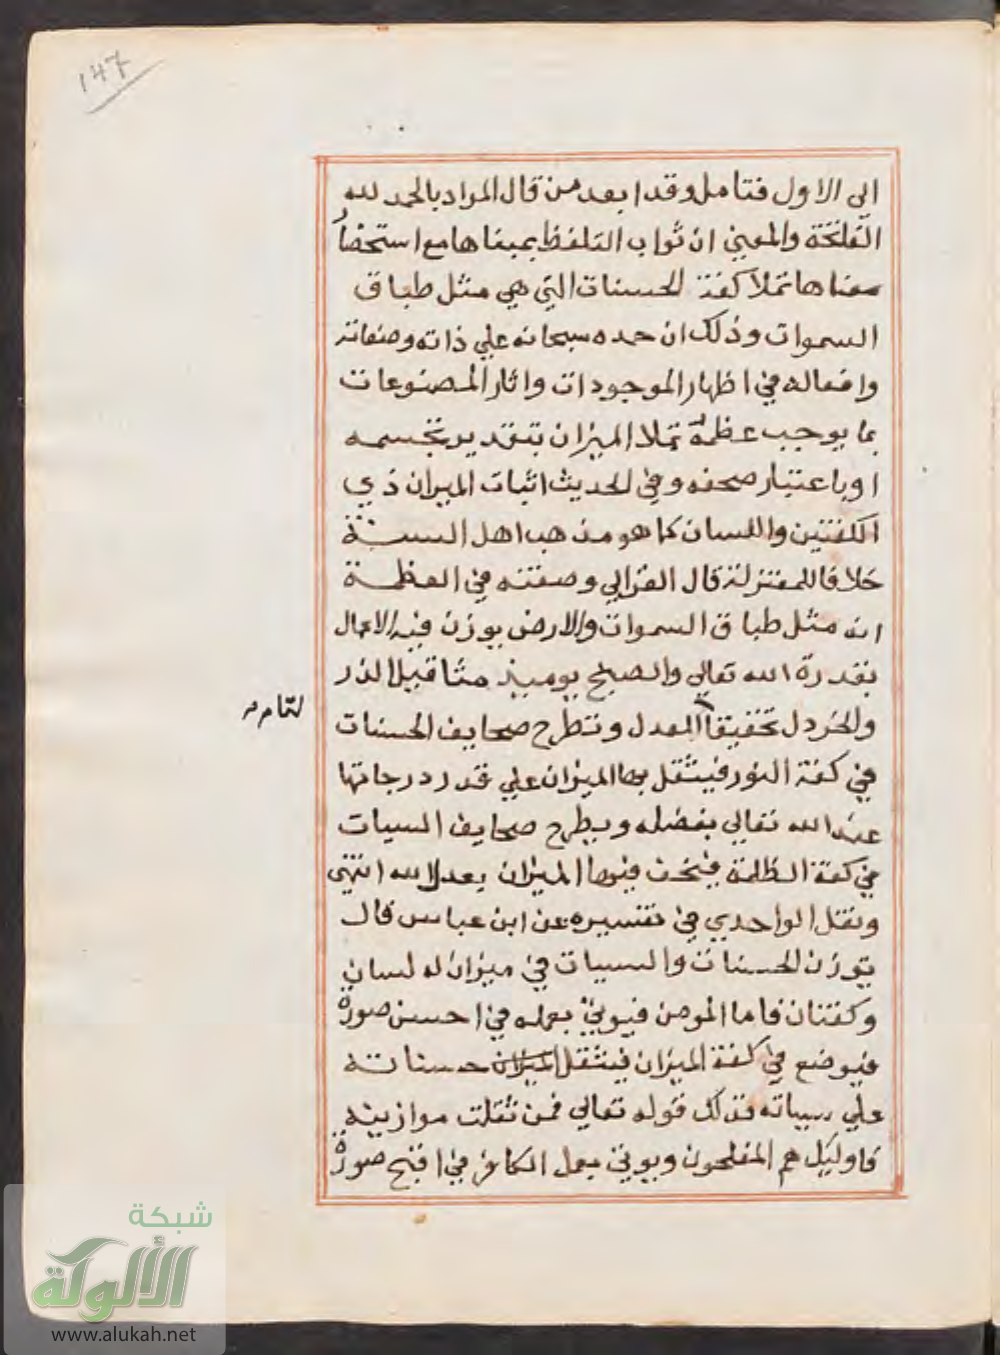 147
الي الاول فتامل وقد ابعد من قال المراد بالحمد لله
الفاتحة والمعني ان ثواب التلفظ بمبناها مع استحضار
معناها تملا كفة الحسنات التي هي مثل طباق
السموات وذلك ان حمده سبحانه علي ذاته وصفاته
وافعاله في اظهار الموجودات واثار المصنوعات
بما يوجب عظمة تملا الميزان بتقدير تجسمه
او باعتبار صحفه وفي الحديث اثبات الميزان ذي
الكفتين واللسان كما هو مذهب اهل السنة
خلافا للمعتزلة قال الغزالي وصفته في العظمة
انه مثل طباق السموات والارض يوزن فيه الاعمال
بقدرة الله تعالي والصنج يوميذ مثاقيل الذر
والخردل تحقيقا العدل وتطرح صحايف الحسنات
لتمام
في كفة النور فيثقل بها الميزان علي قدر درجاتها
عند الله تعالي بفضله ويطرح صحايف السيات
في كفة الظلمة فيخف فيها الميزان بعدل الله انتهي
ونقل الواحدي في تفسيره عن ابن عباس قال
توزن الحسنات والسيات في ميزان له لسان
وكفتان فاما المومن فيوتي بعمله في احسن صورة
فيوضع في كفة الميزان فيثقل الميزان حسناته
علي سياته فذلك قوله تعالي فمن ثقلت موازينه
فاوليك هم المفلحون ويوتي بعمل الكافر في اقبح صورة
شبكة
الألوكة
www.alukah.net